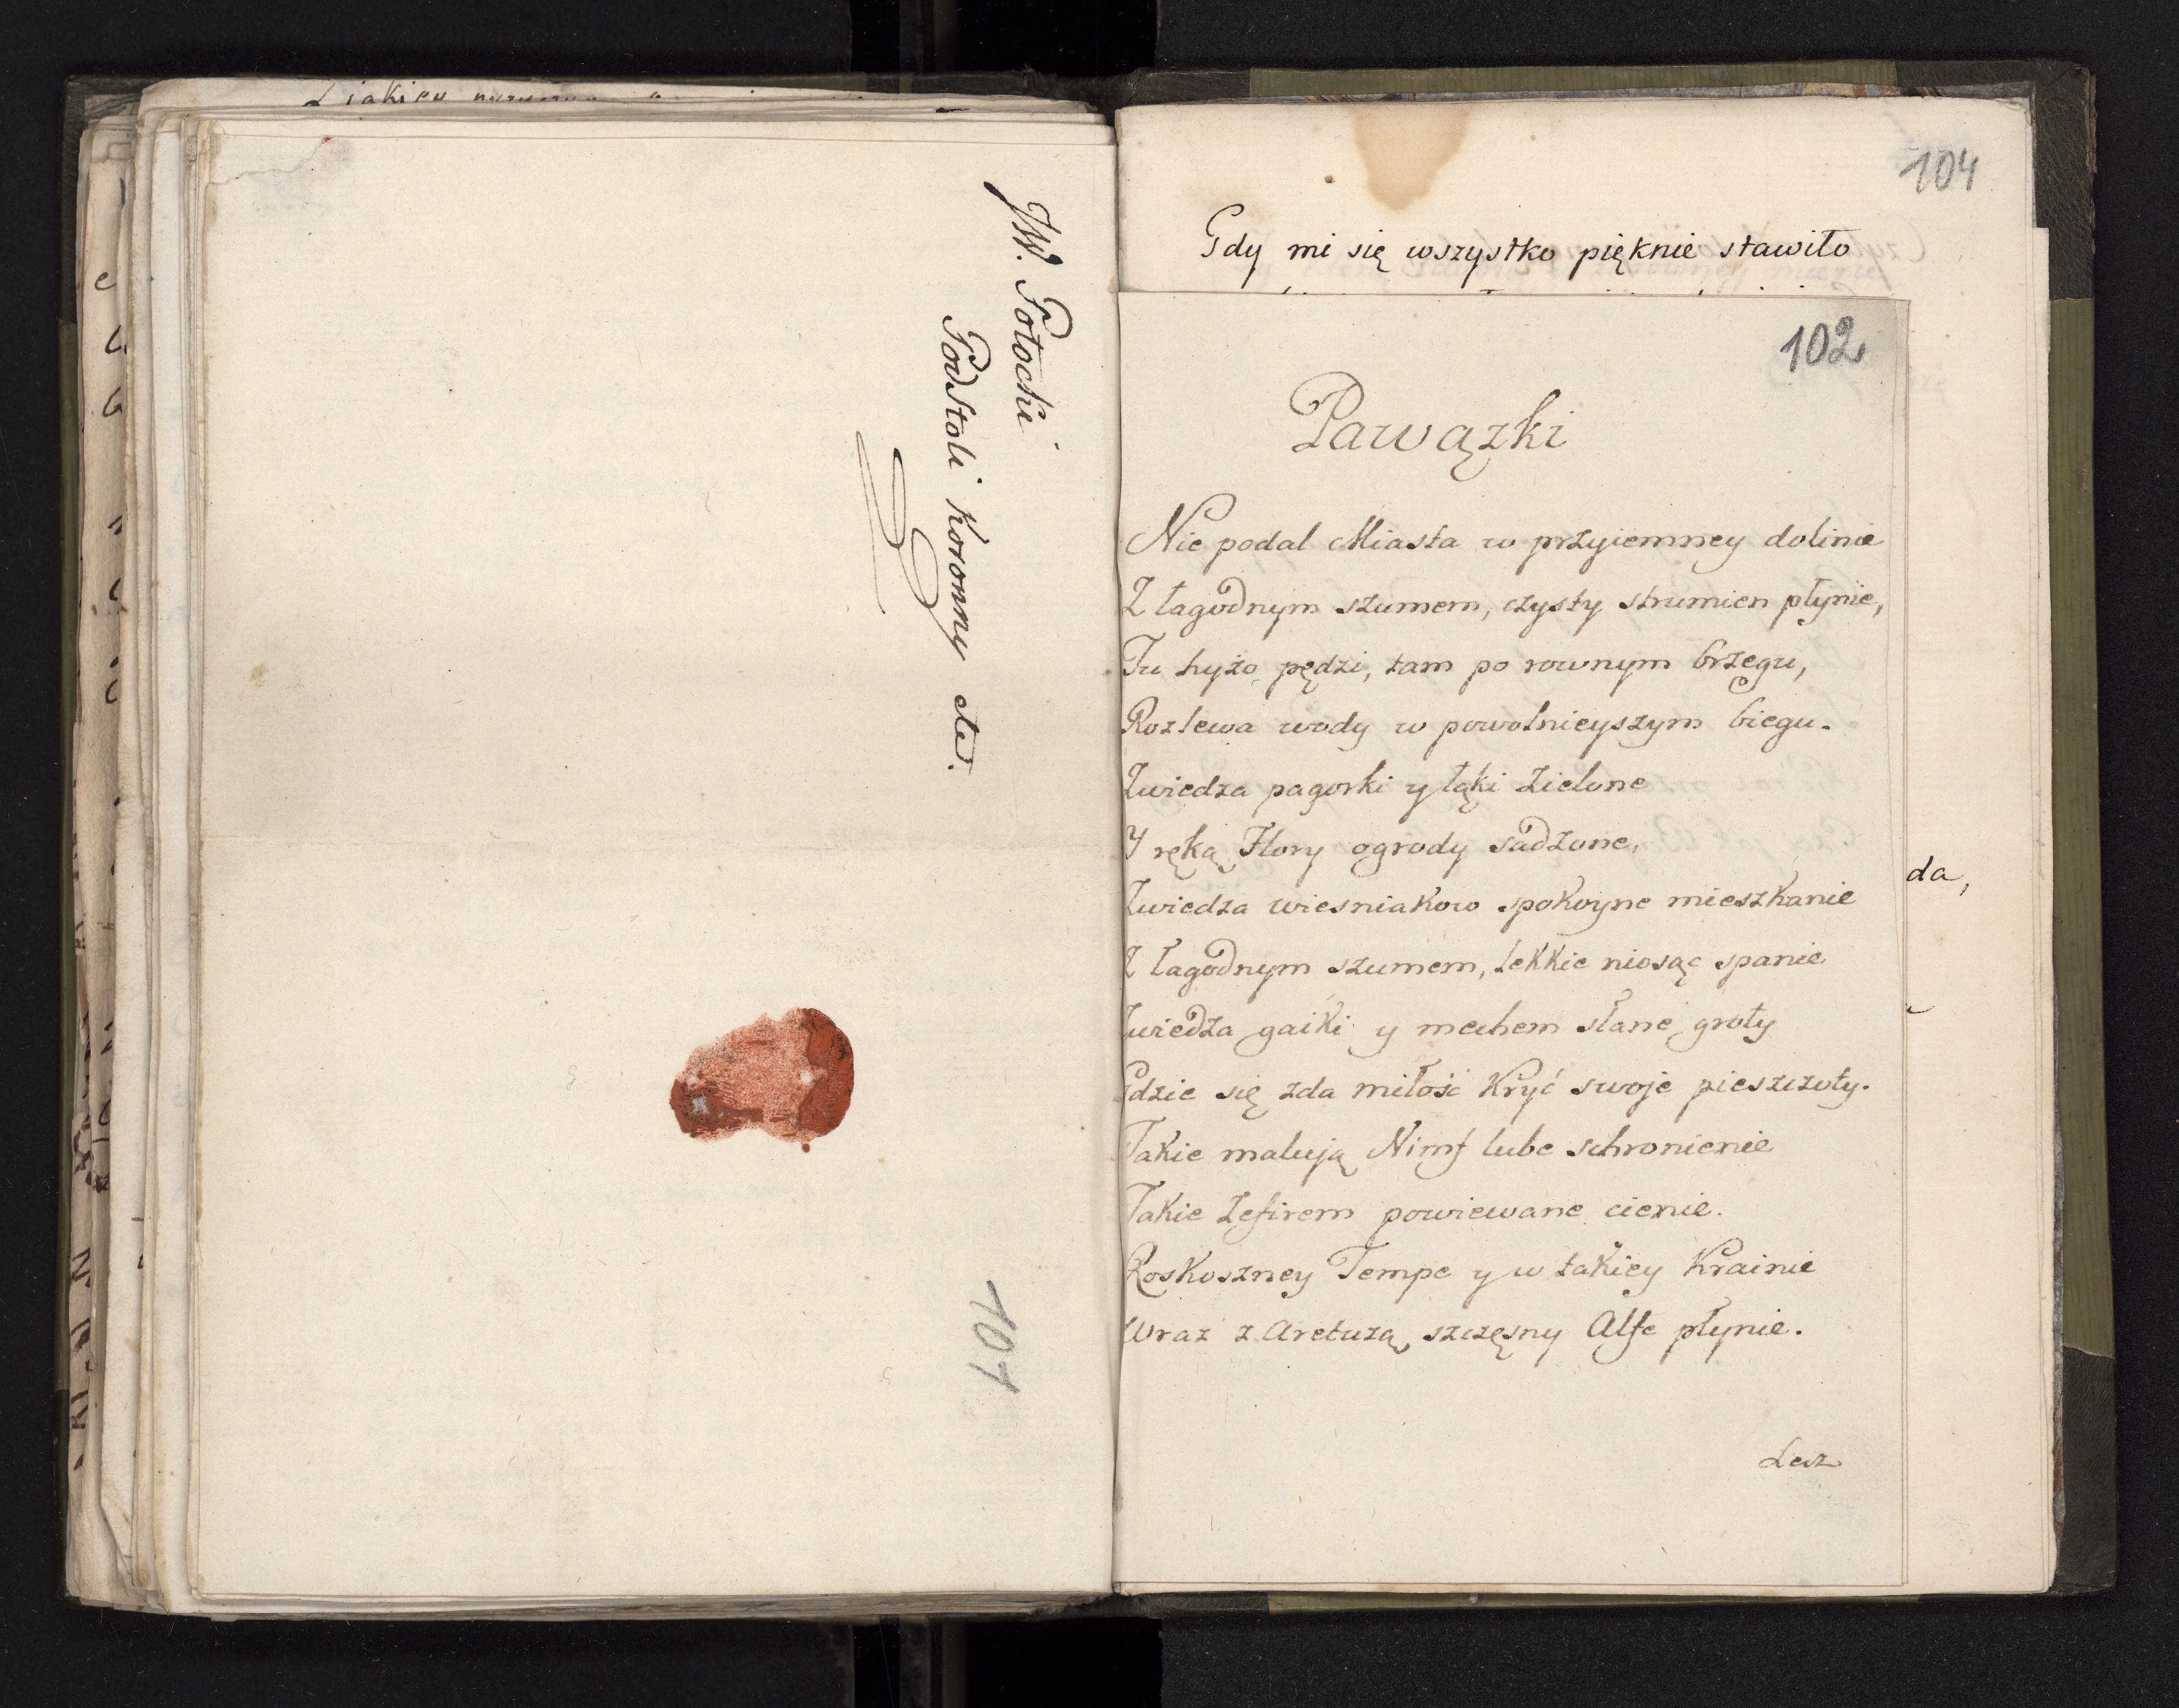 JW. Potocki
Podstoli Koronny etc.
101
104
Gdy mi się wszystko pięknie stawiło
102
Pawązki
Nie podal Miasta w przyiemney dolinie
Z łagodnym szumem, czysty strumien płynie,
Tu hyżo pędzi, tam po rownym brzegu,
Rozlewa wody w powolnieyszym biegu.
Zwiedza pagorki y łąki Zielone
Y ręką Flory ogrody sadzone,
Zwiedza wiesniakow spokoyne mieszkanie
Z łagodnym szumem, lekkie niosąc spanie
Zwiedza gaiki y mechem słane groty
Gdzie się zda miłość kryć swoje pieszczoty.
Takie malują Nimf lube schronienie
Takie Zefirem powiewane cienie.
Roskoszney Tempe y w takiey Krainie
Wraz z Aretuzą szczęsny Alfe płynie.
Lecz
da,